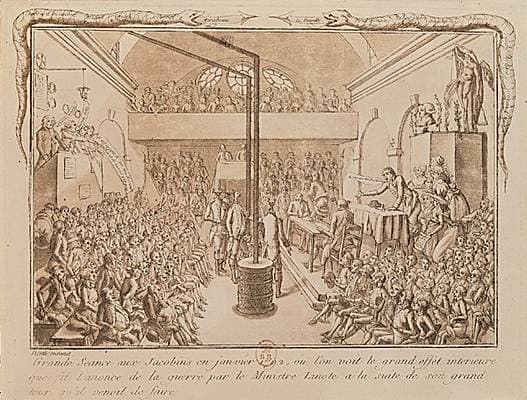 Grande Séance aux Jacobins en janvier 1792, où l'on voit le grand effèt interieure
que fit l'anonce de la guerre par le Ministre Linote a la suite de son grand
tour qu'il venoit de faire